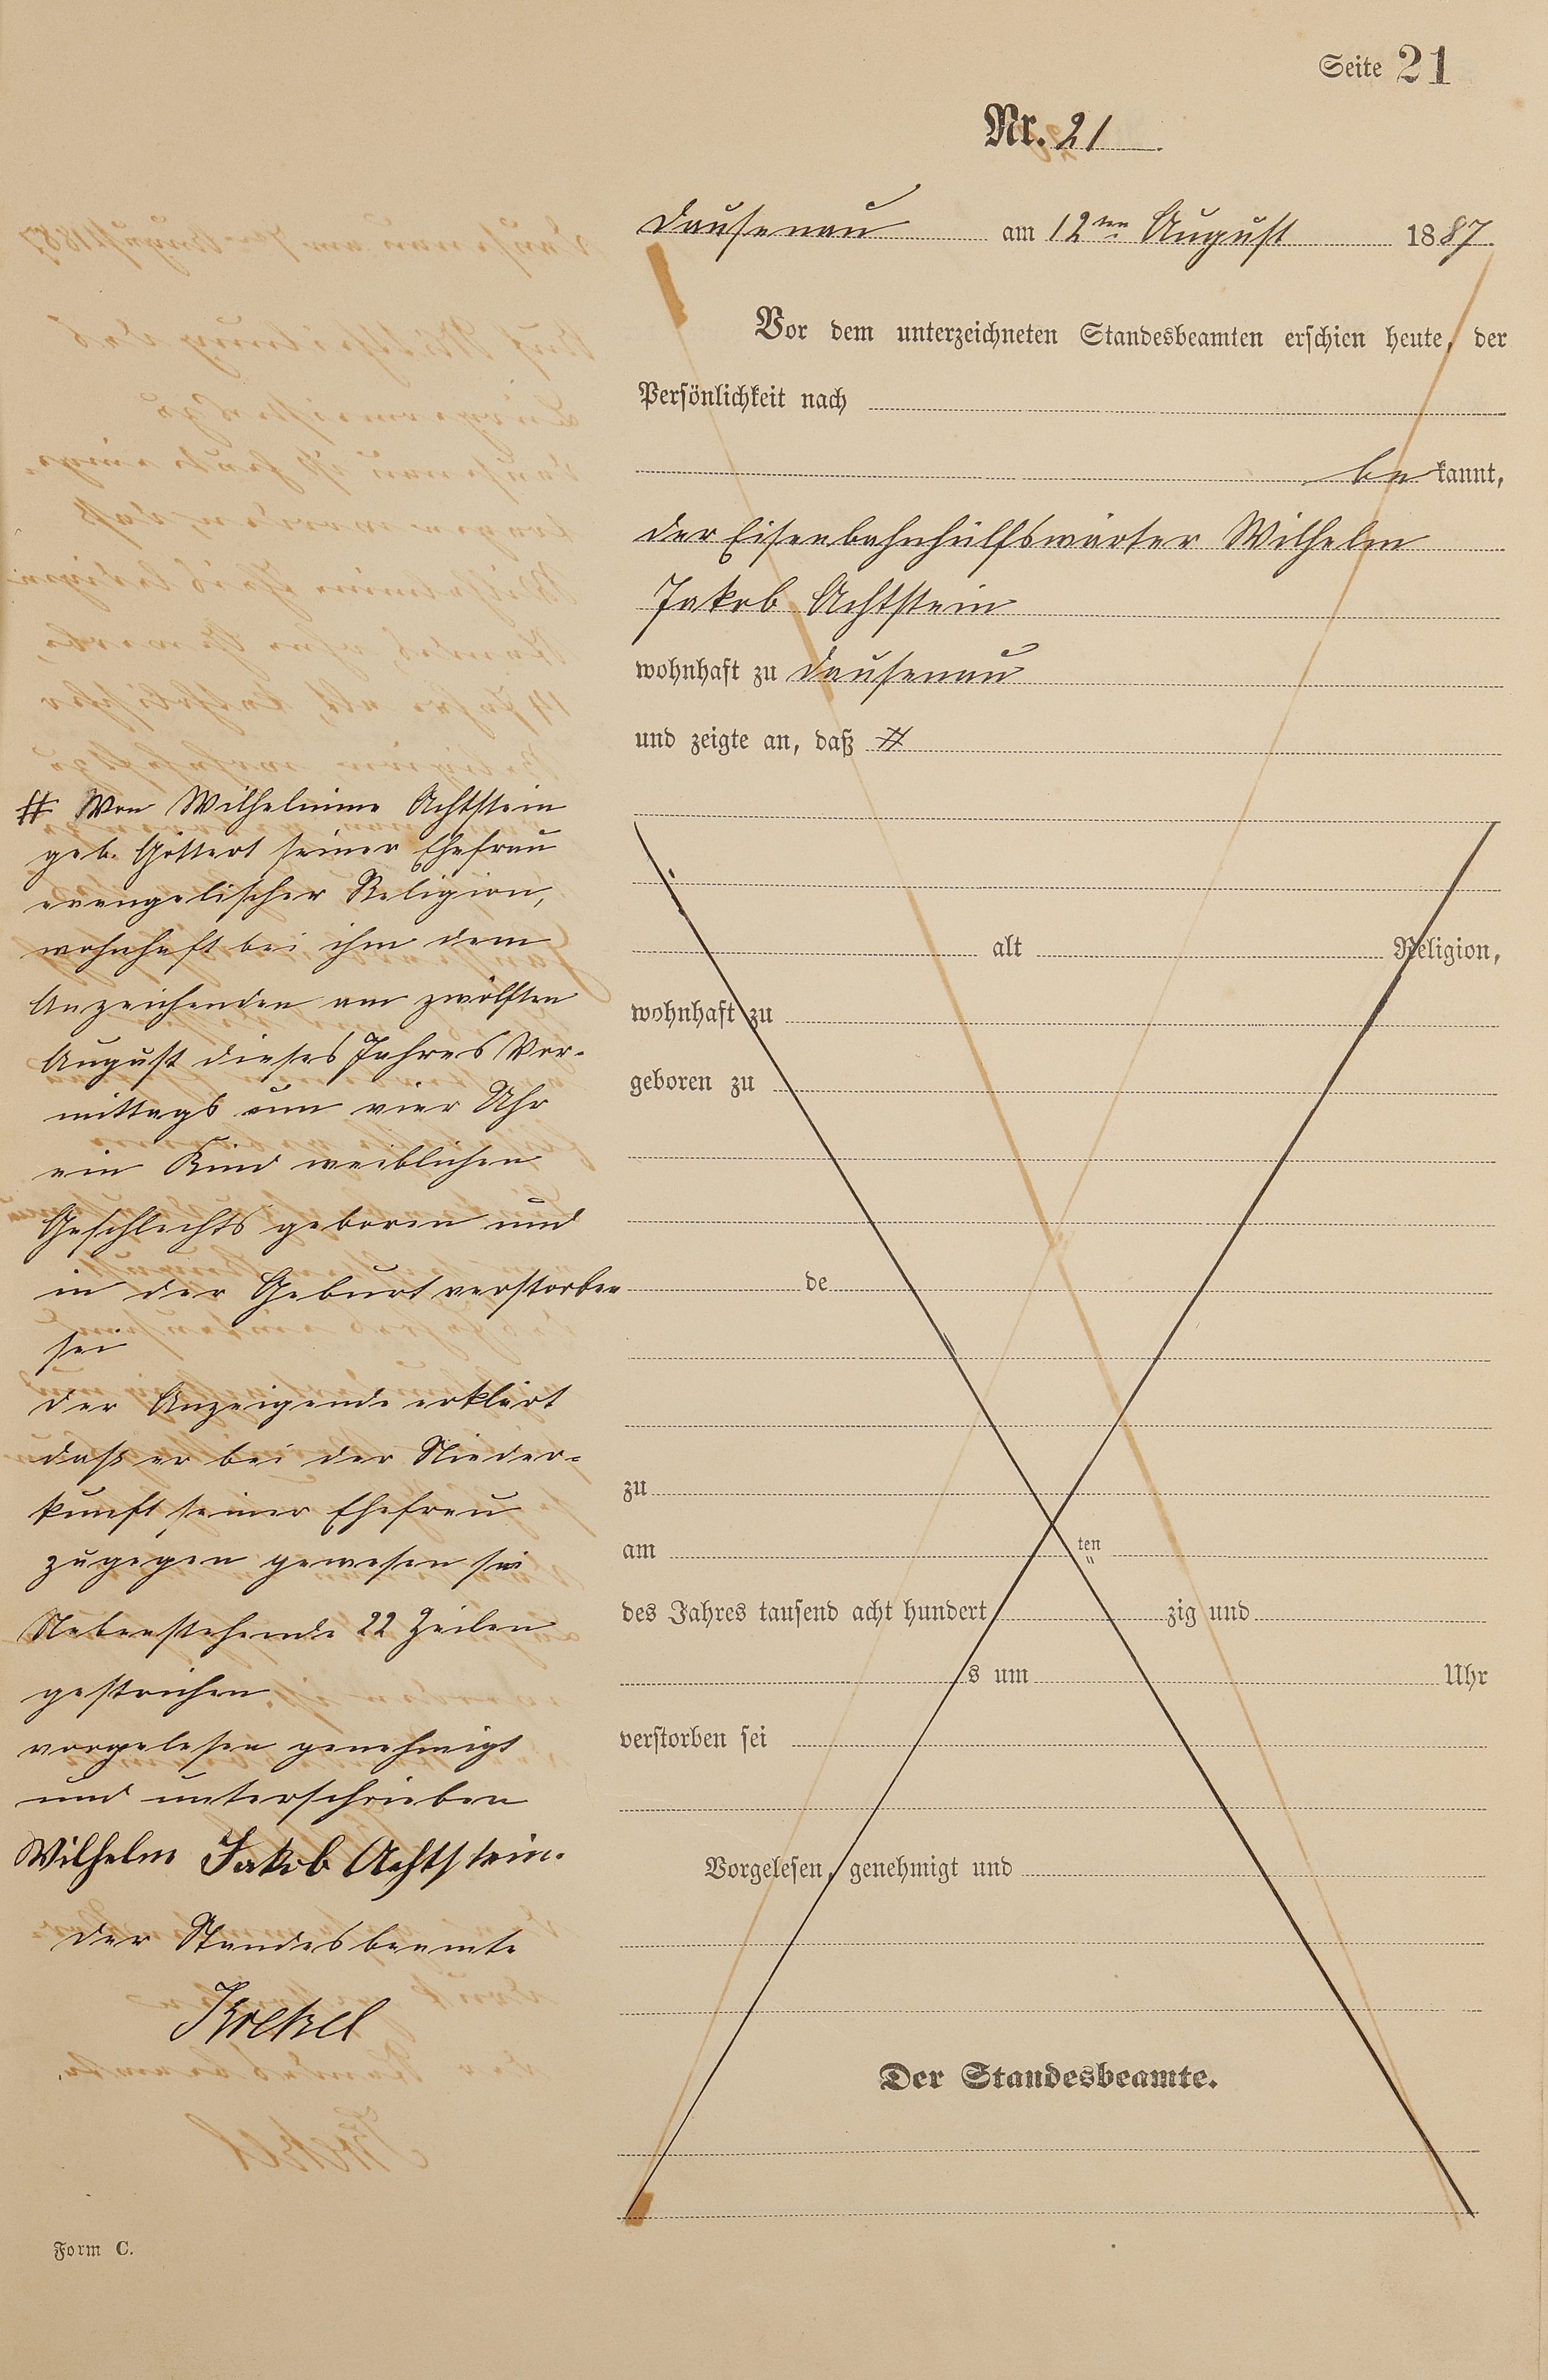 Seite 21
Nr. 21
Dausenau am 12ten August 1887.
Vor dem unterzeichneten Standesbeamten erschien heute, der
Persönlichkeit nach
bekannt,
der Eisenbahnhülfswärter Wilhelm
Jakob Achtstein
wohnhaft zu Dausenau
und zeigte an, daß #
# Von Wilhelmine Achtstein
geb. Göttert seiner Ehefrau
evangelischer Religion,
wohnhaft bei ihm dem
Anzeichenden am zwölften
August dieses Jahres Vor-
mittags um vier Uhr
ein Kind weiblichen
Geschlechts geboren und
in der Geburt verstorben
sei
der Anzeigende erklärt
daß er bei der Nieder-
kunft seiner Ehefrau
zugegen gewesen sei
Nebenstehende 22 Zeilen
gestrichen
vorgelesen genehmigt
und unterschrieben
Wilhelm Jakob Achtstein.
der Standesbeamte
alt Religion,
wohnhaft zu
geboren zu
de
zu
am ten
des Jahres tausend acht hundert zig und
s um Uhr
verstorben sei
Vorgelesen, genehmigt und
Der Standesbeamte.
Form C.